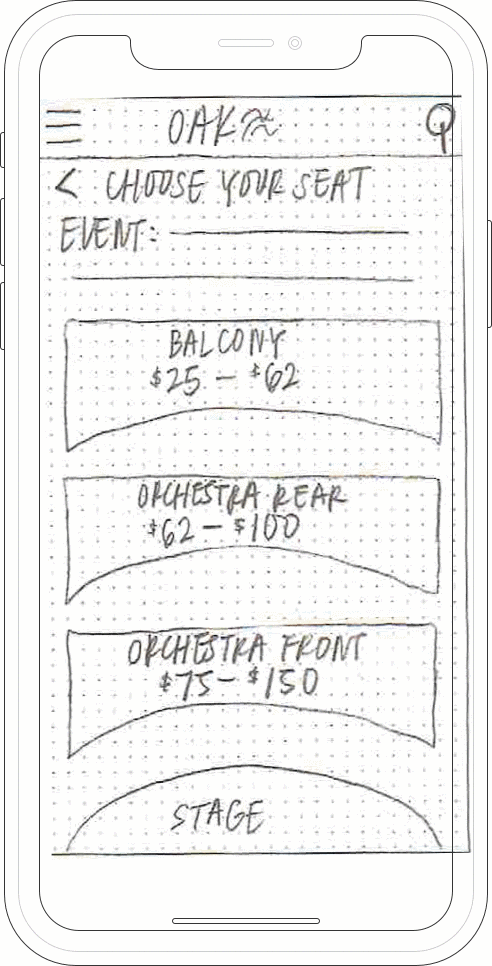 OAK
< CHOOSE YOUR SEAT
EVENT:
BALCONY
$25 – $62
ORCHESTRA REAR
$62 – $100
ORCHESTRA FRONT
$75 – $150
STAGE